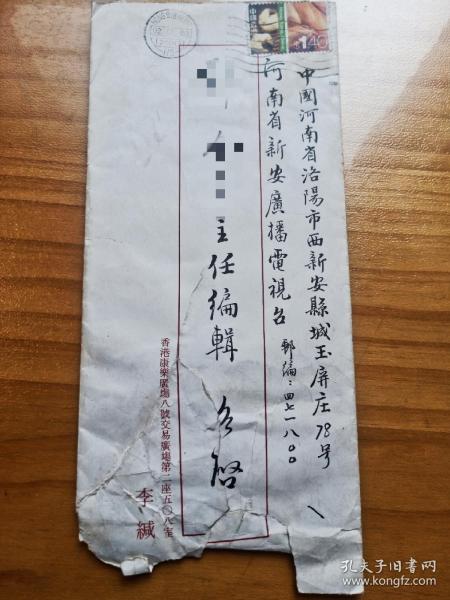 中國河南省洛陽市西新安縣城玉屏庄78号
河南省新安廣播電視台
郵編：四七一八〇〇
主任編輯 台啓
香港康樂廣場八號交易廣場第二座五〇八室
李緘
1.40
孔夫子旧书网
www.kongfz.com